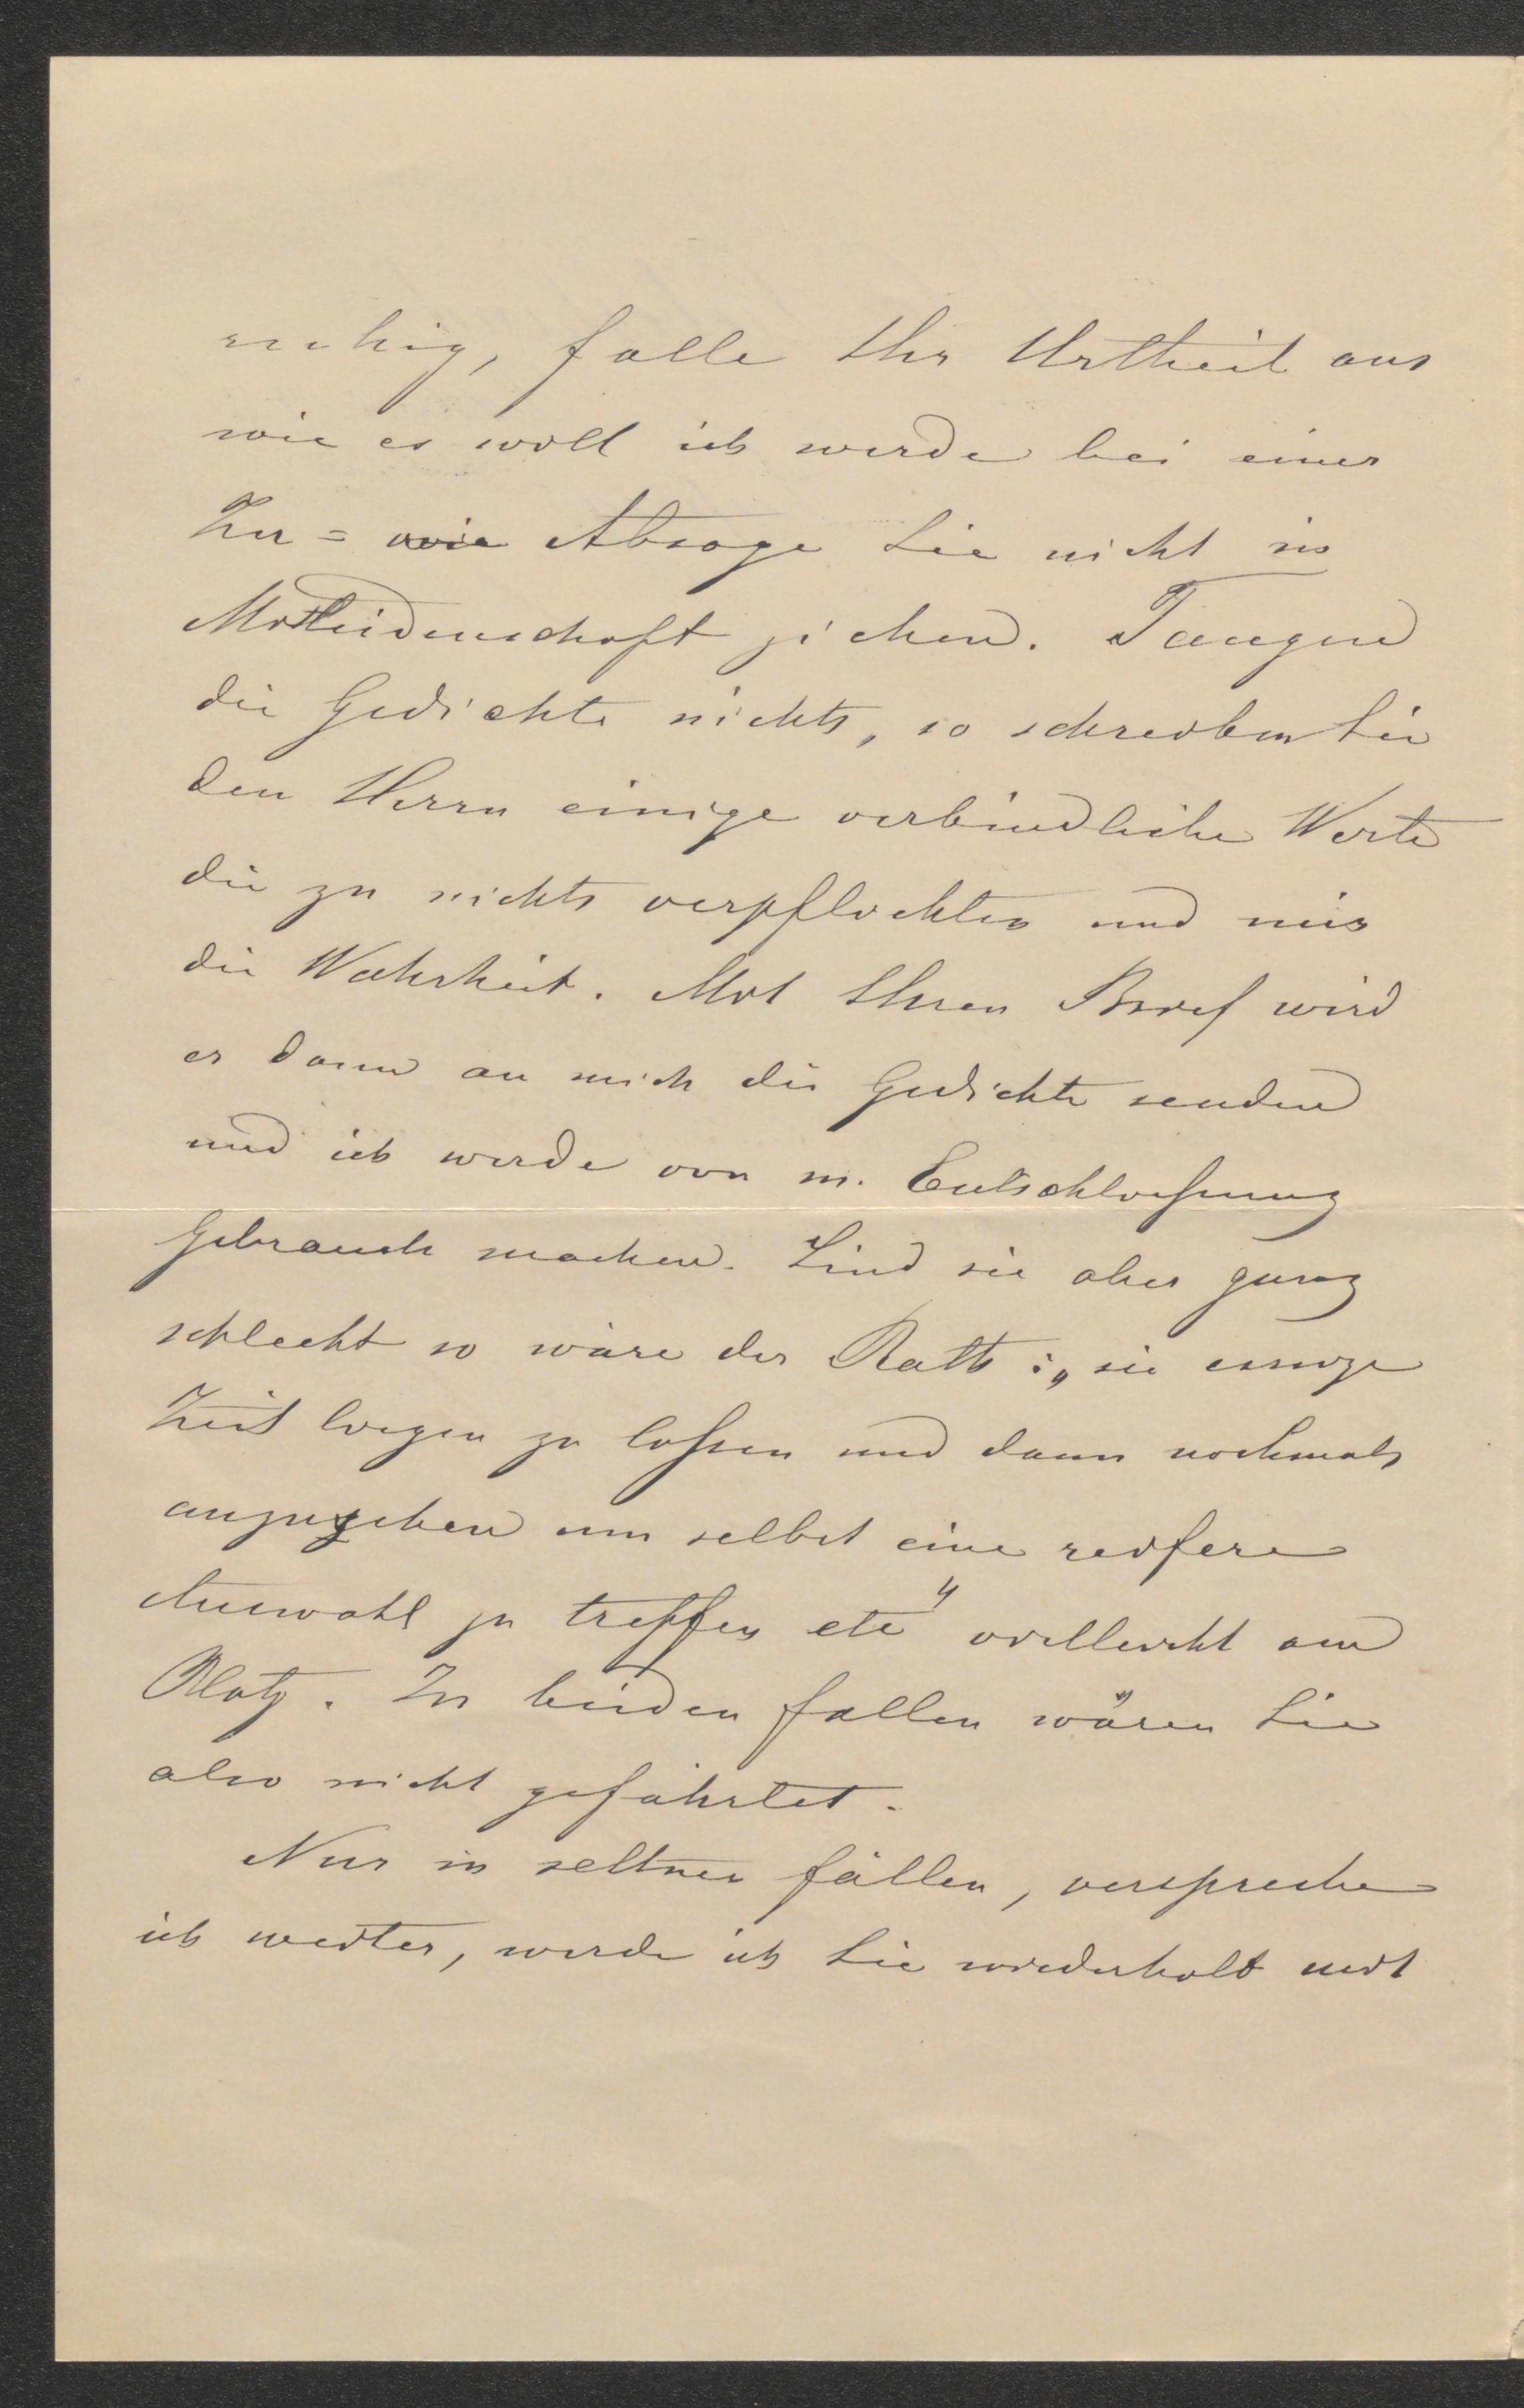 ruhig, falle Ihr Urtheil aus
wie es woll ich werde bei einer
Zu= wie Absage Sie nicht in
Mitleidenschaft ziehen. Taugen
die Gedichte nichts, so schreiben Sie
den Herrn einige verbindliche Worte
die zu nichts verpflichten und mir
die Wahrheit. Mit Ihren Brief wird
er dann an mich die Gedichte senden
und ich werde von m. Entschließung
Gebrauch machen. Sind sie aber ganz
schlecht so wäre der Rath: „sie einige
Zeit liegen zu laßen und dann nochmals
anzugehen um selbst eine reifere
Auswahl zu treffen etc" vielleicht am
Platz. In beiden Fallen wären Sie
also nicht gefährtet.
Nur in seltnen Fällen, verspreche
ich weiter, werde ich Sie wiederholt mit